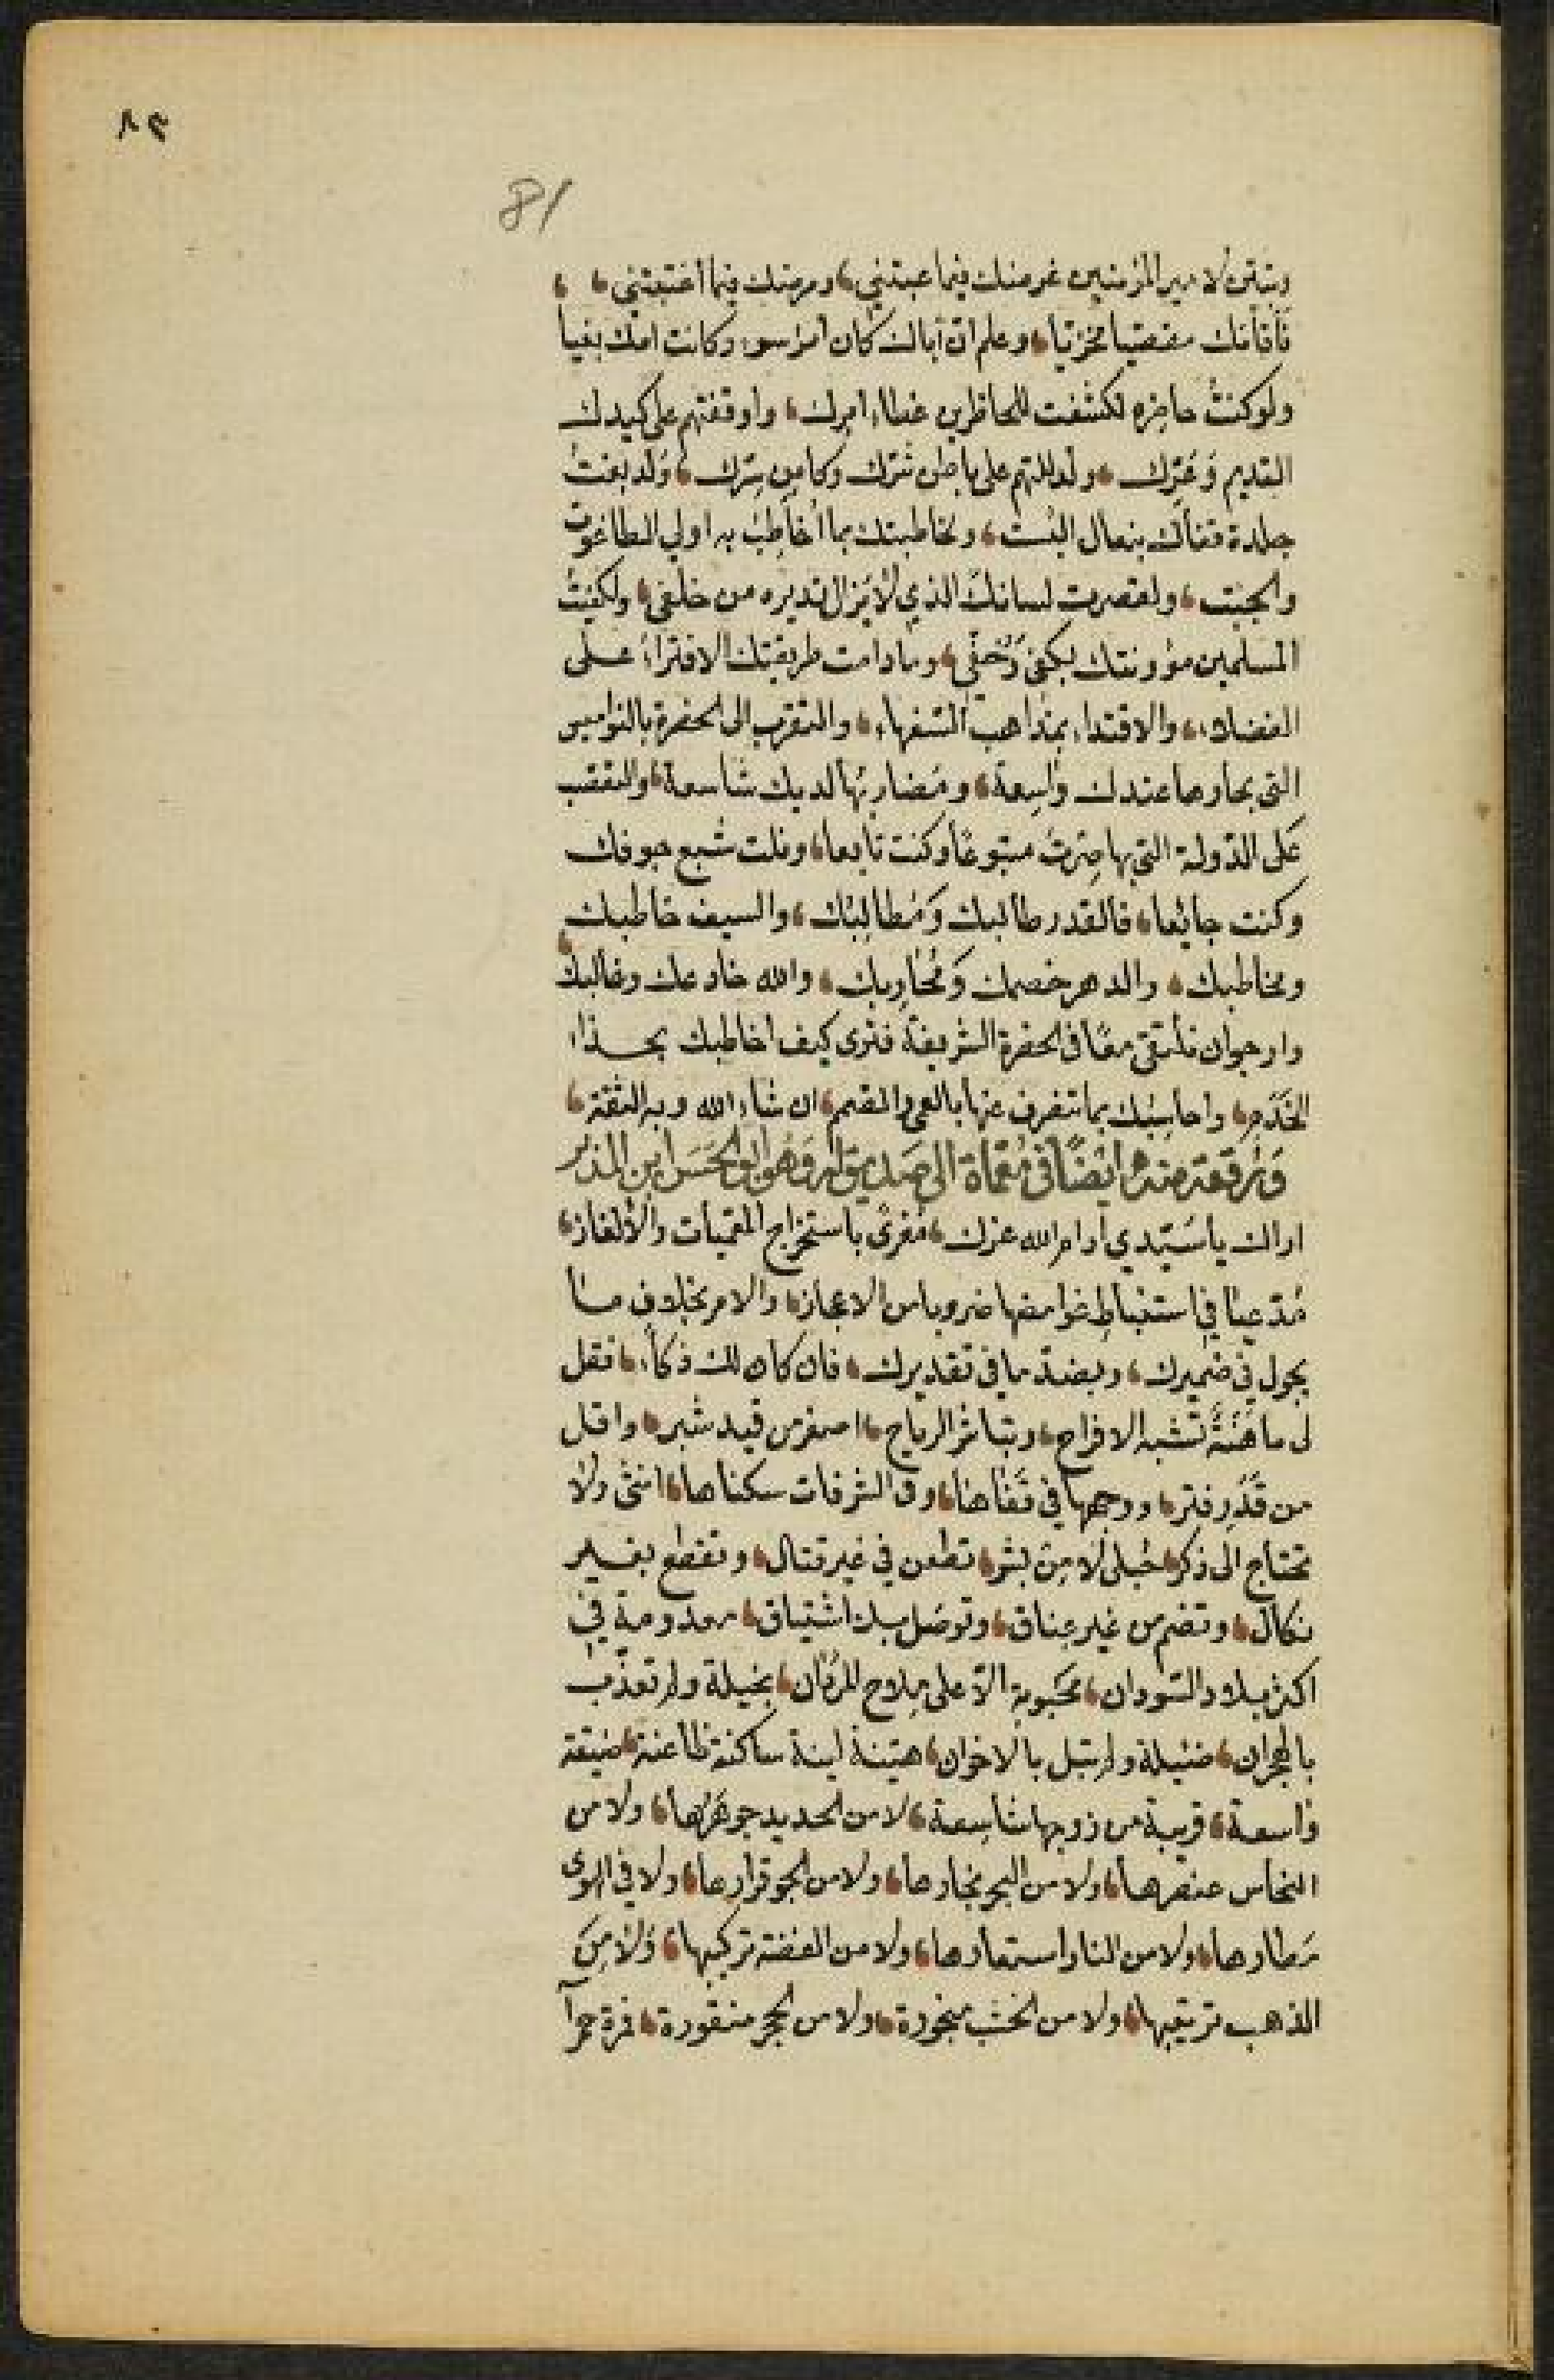 ٨٢
81
وبتبين لامير المؤمنين غرضك فيما عبتني، ومرضك فيما اغتبتني،
فأقامك مقصيا مخزيا، وعلم ان أباك كان أمرأ سوء وكانت امك بغيا
ولو كنت حاضره لكشفت للحاظرين غطاء امرك، واوقفتهم على كيدك
القديم وغدرك، ولدللتهم على باطن شرك وكامن سرك،
جلدة قفاك بنعال السبت، ولخاطبتك بما أخاطب به اولي الطاغوت
والجبت، ولقصرت لسانك الذي لا يزال تديره من خلفي، ولكفيت
المسلمين مؤونتك بكفي وخفي، وما دامت طريقتك الافتراء على
الفضلاء، والاقتداء بمذاهب السفهاء، والتقرب الى الحضرة بالنواميس
التي بحارها عندك واسعة، ومضاربها لديك شاسعة، والتعصب
على الدولة التي بها صرت متبوعا وكنت تابعا، ونلت شبع جوفك
وكنت جائعا، فالقدر طالبك ومطالبك، والسيف خاطبك
ومخاطبك، والدهر خصمك ومحاربك، والله خادعك وغالبك،
وارجو ان نلتقي معا في الحضرة الشريفة فترى كيف اخاطبك بحذاء
الخدم، واحاسبك بما تنصرف عنها بالعمى والصم، ان شاء الله وبه الثقة،
ومن رقعة عنده ايضا في معماة الى صديق له وهو ابو الحسن ابن المذبر
اراك يا سيدي ادام الله عزك، مغرى باستخراج المعميات والألغاز،
مدعيا في استنباط غوامضها ضروبا من الاعجاز، والامر بخلاف ما
يجول في ضميرك، وبضد ما في تقديرك، فان كان لك ذكاء، فقل
لي ما هنة تشبه الافراح، وتباشر الرياح، اصغر من قيد شبر، واقل
من قدر فتر، ووجهها في قفاها، وفي الشرفات سكناها، انثى ولا
تحتاج الى ذكر، حبلى لا من بشر، تطعن في غير قتال، وتقطع بغير
نكال، وتضم من غير عناق، وتوصل بلا اشتياق، معدومة في
اكثر بلاد السودان، محبوبة الا على ملاح المردان، بخيلة ولم تعذب
بالهجران، ضئيلة ولم تبل بالاخوان، هينة لينة ساكنة ظاعنة، ضيقة
واسعة، قريبة من زوجها شاسعة، لا من الحديد جوهرها، ولا من
النحاس عنصرها، ولا من البحر بخارها، ولا من الجو قرارها، ولا في الهوى
مطارها، ولا من النار استعارها، ولا من الفضة تركيبها، ولا من
الذهب ترتيبها، ولا من الخشب منجورة، ولا من الحجر منقورة، حمرآ